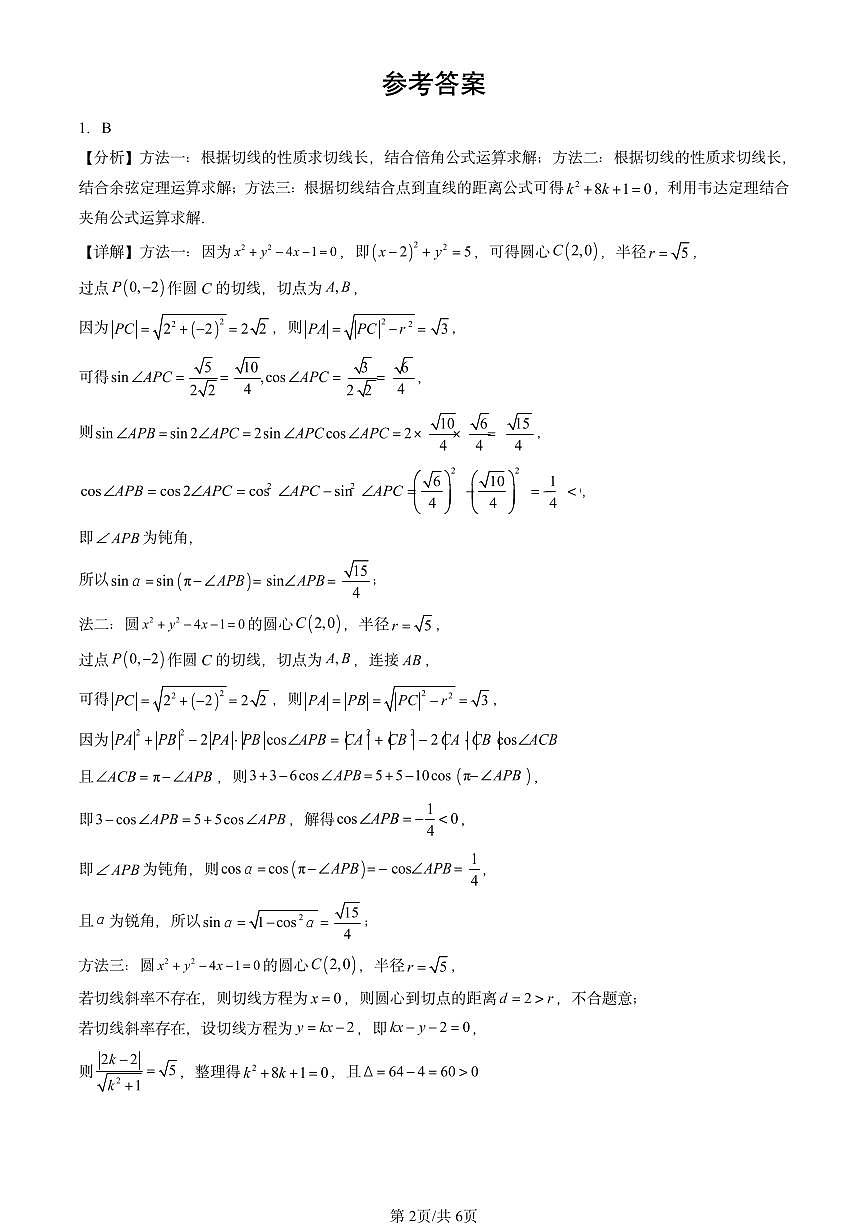 参考答案
1. B
【分析】方法一：根据切线的性质求切线长，结合倍角公式运算求解；方法二：根据切线的性质求切线长，
结合余弦定理运算求解；方法三：根据切线结合点到直线的距离公式可得 k²+8k+1=0，利用韦达定理结合
夹角公式运算求解.
【详解】方法一：因为 x²+y²−4x−1=0，即 (x−2)²+y²=5，可得圆心 C(2,0)，半径 r=√5，
过点 P(0,−2) 作圆 C 的切线，切点为 A,B，
因为 |PC|=√(2²+(−2)²)=2√2，则 |PA|=√(|PC|²−r²)=√3，
可得 sin∠APC=√5/(2√2)=√10/4,cos∠APC=√3/(2√2)=√6/4，
则 sin∠APB=sin2∠APC=2sin∠APCcos∠APC=2×√10/4×√6/4=√15/4，
cos∠APB=cos2∠APC=cos²∠APC−sin²∠APC=(√6/4)²−(√10/4)²=1/4<，
即∠APB 为钝角，
所以 sinα=sin(π−∠APB)=sin∠APB=√15/4；
法二：圆 x²+y²−4x−1=0 的圆心 C(2,0)，半径 r=√5，
过点 P(0,−2) 作圆 C 的切线，切点为 A,B，连接 AB，
可得 |PC|=√(2²+(−2)²)=2√2，则 |PA|=|PB|=√(|PC|²−r²)=√3，
因为 |PA|²+|PB|²−2|PA|·|PB|cos∠APB=|CA|²+|CB|²−2|CA|·|CB|cos∠ACB
且∠ACB=π−∠APB，则 3+3−6cos∠APB=5+5−10cos(π−∠APB)，
即 3−cos∠APB=5+5cos∠APB，解得 cos∠APB=−1/4<0，
即∠APB 为钝角，则 cosα=cos(π−∠APB)=−cos∠APB=1/4，
且 α 为锐角，所以 sinα=√(1−cos²α)=√15/4；
方法三：圆 x²+y²−4x−1=0 的圆心 C(2,0)，半径 r=√5，
若切线斜率不存在，则切线方程为 x=0，则圆心到切点的距离 d=2>r，不合题意；
若切线斜率存在，设切线方程为 y=kx−2，即 kx−y−2=0，
则 |2k−2|/√(k²+1)=√5，整理得 k²+8k+1=0，且 Δ=64−4=60>0
第 2页/共 6页